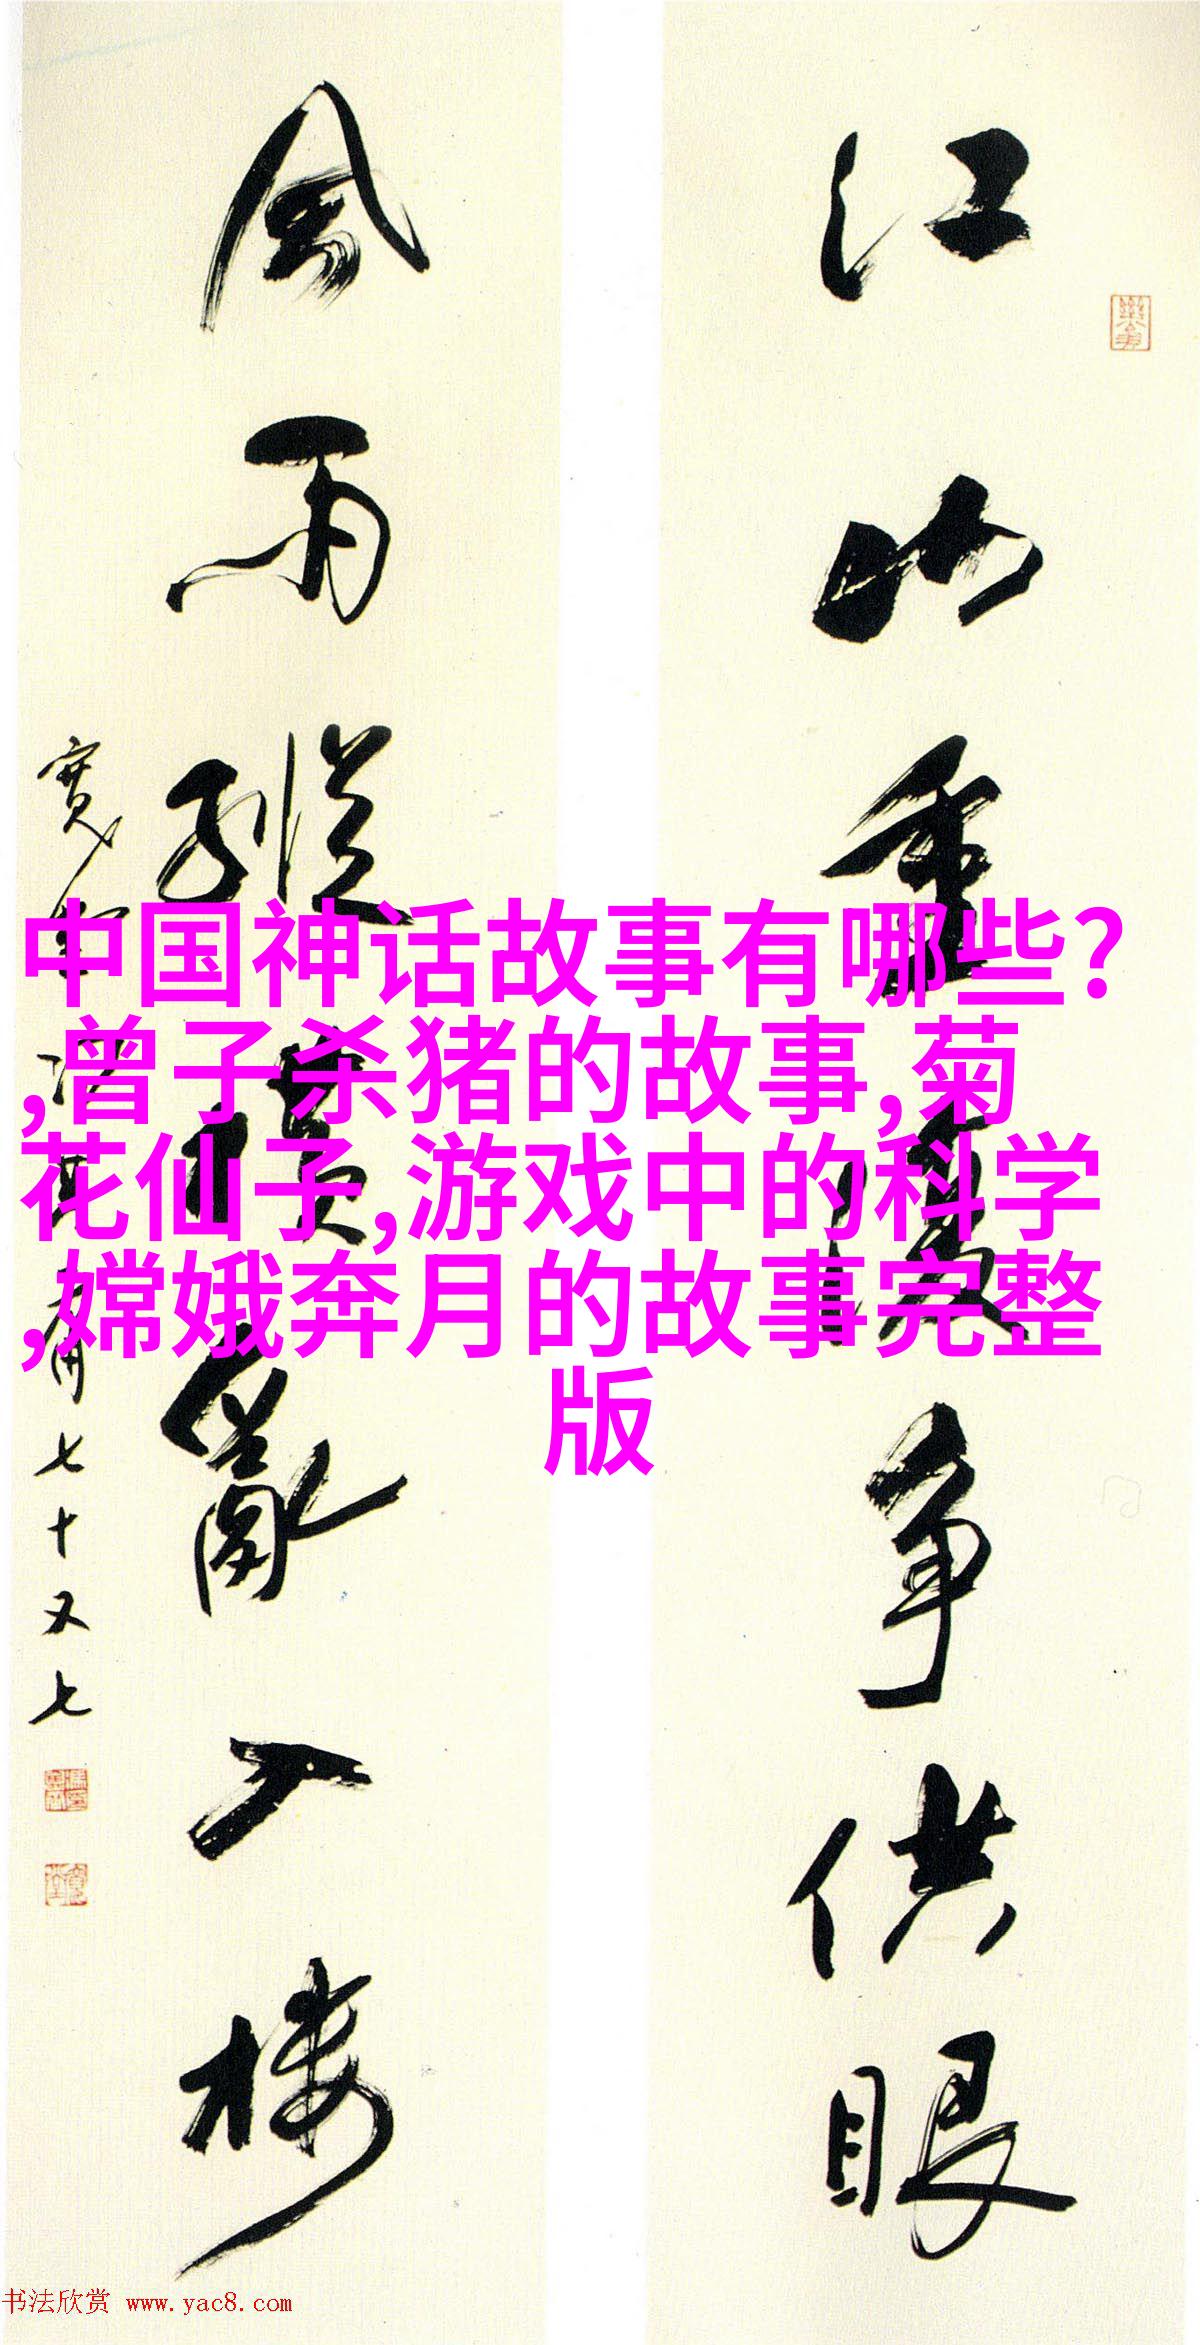 江山重複争供眼
風雨縱橫亂入楼
七十又七
中国神话故事有哪些?
,曾子杀猪的故事,菊
花仙子,游戏中的科学
,嫦娥奔月的故事完整
版
书法欣赏 www.yac8.com